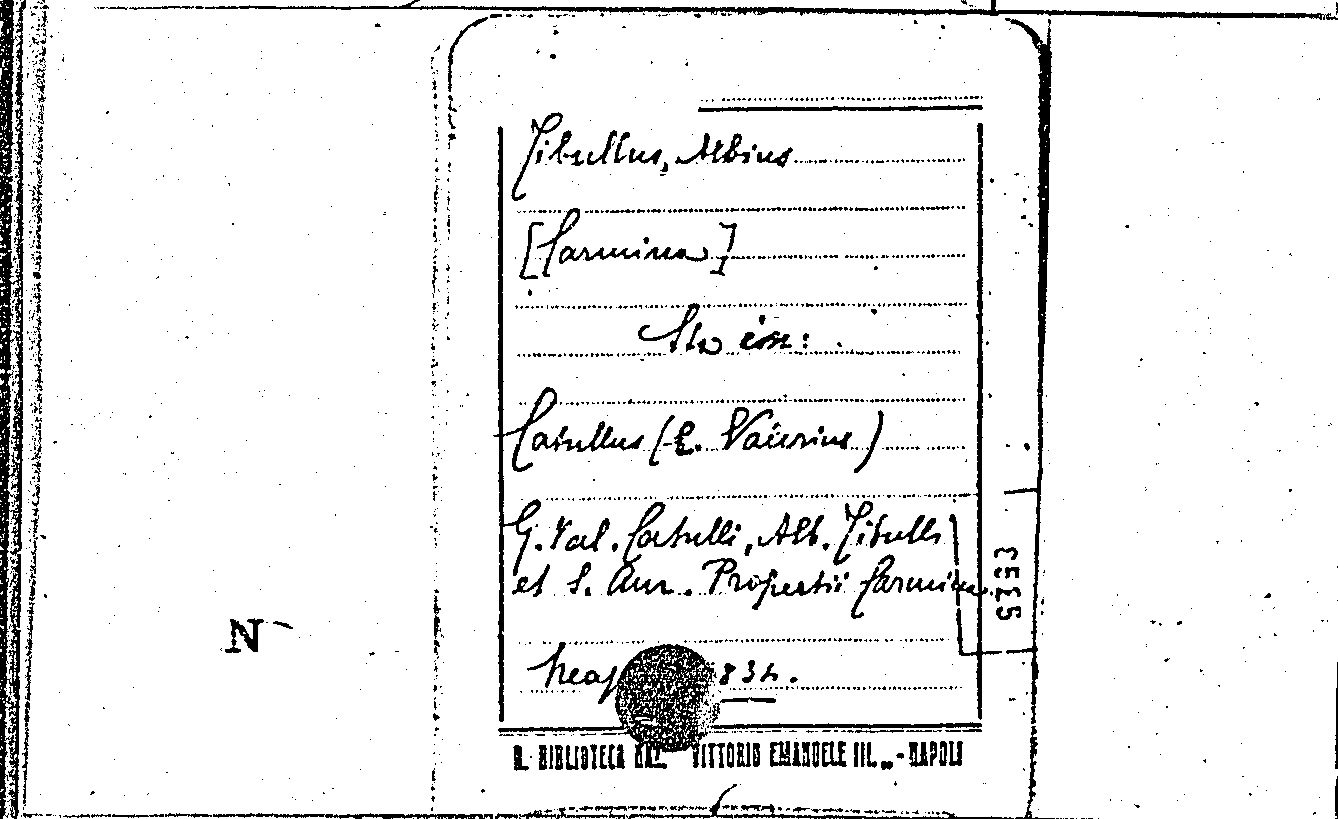 Tibullus, Albius
[Carmina]
Sta in:
Catullus (C. Valerius)
G. Val. Catulli, Alb. Tibulli
et S. Aur. Propertii Carmina
Neap 1834.
R. BIBLIOTECA NAZ. VITTORIO EMANUELE III. „ - NAPOLI
N